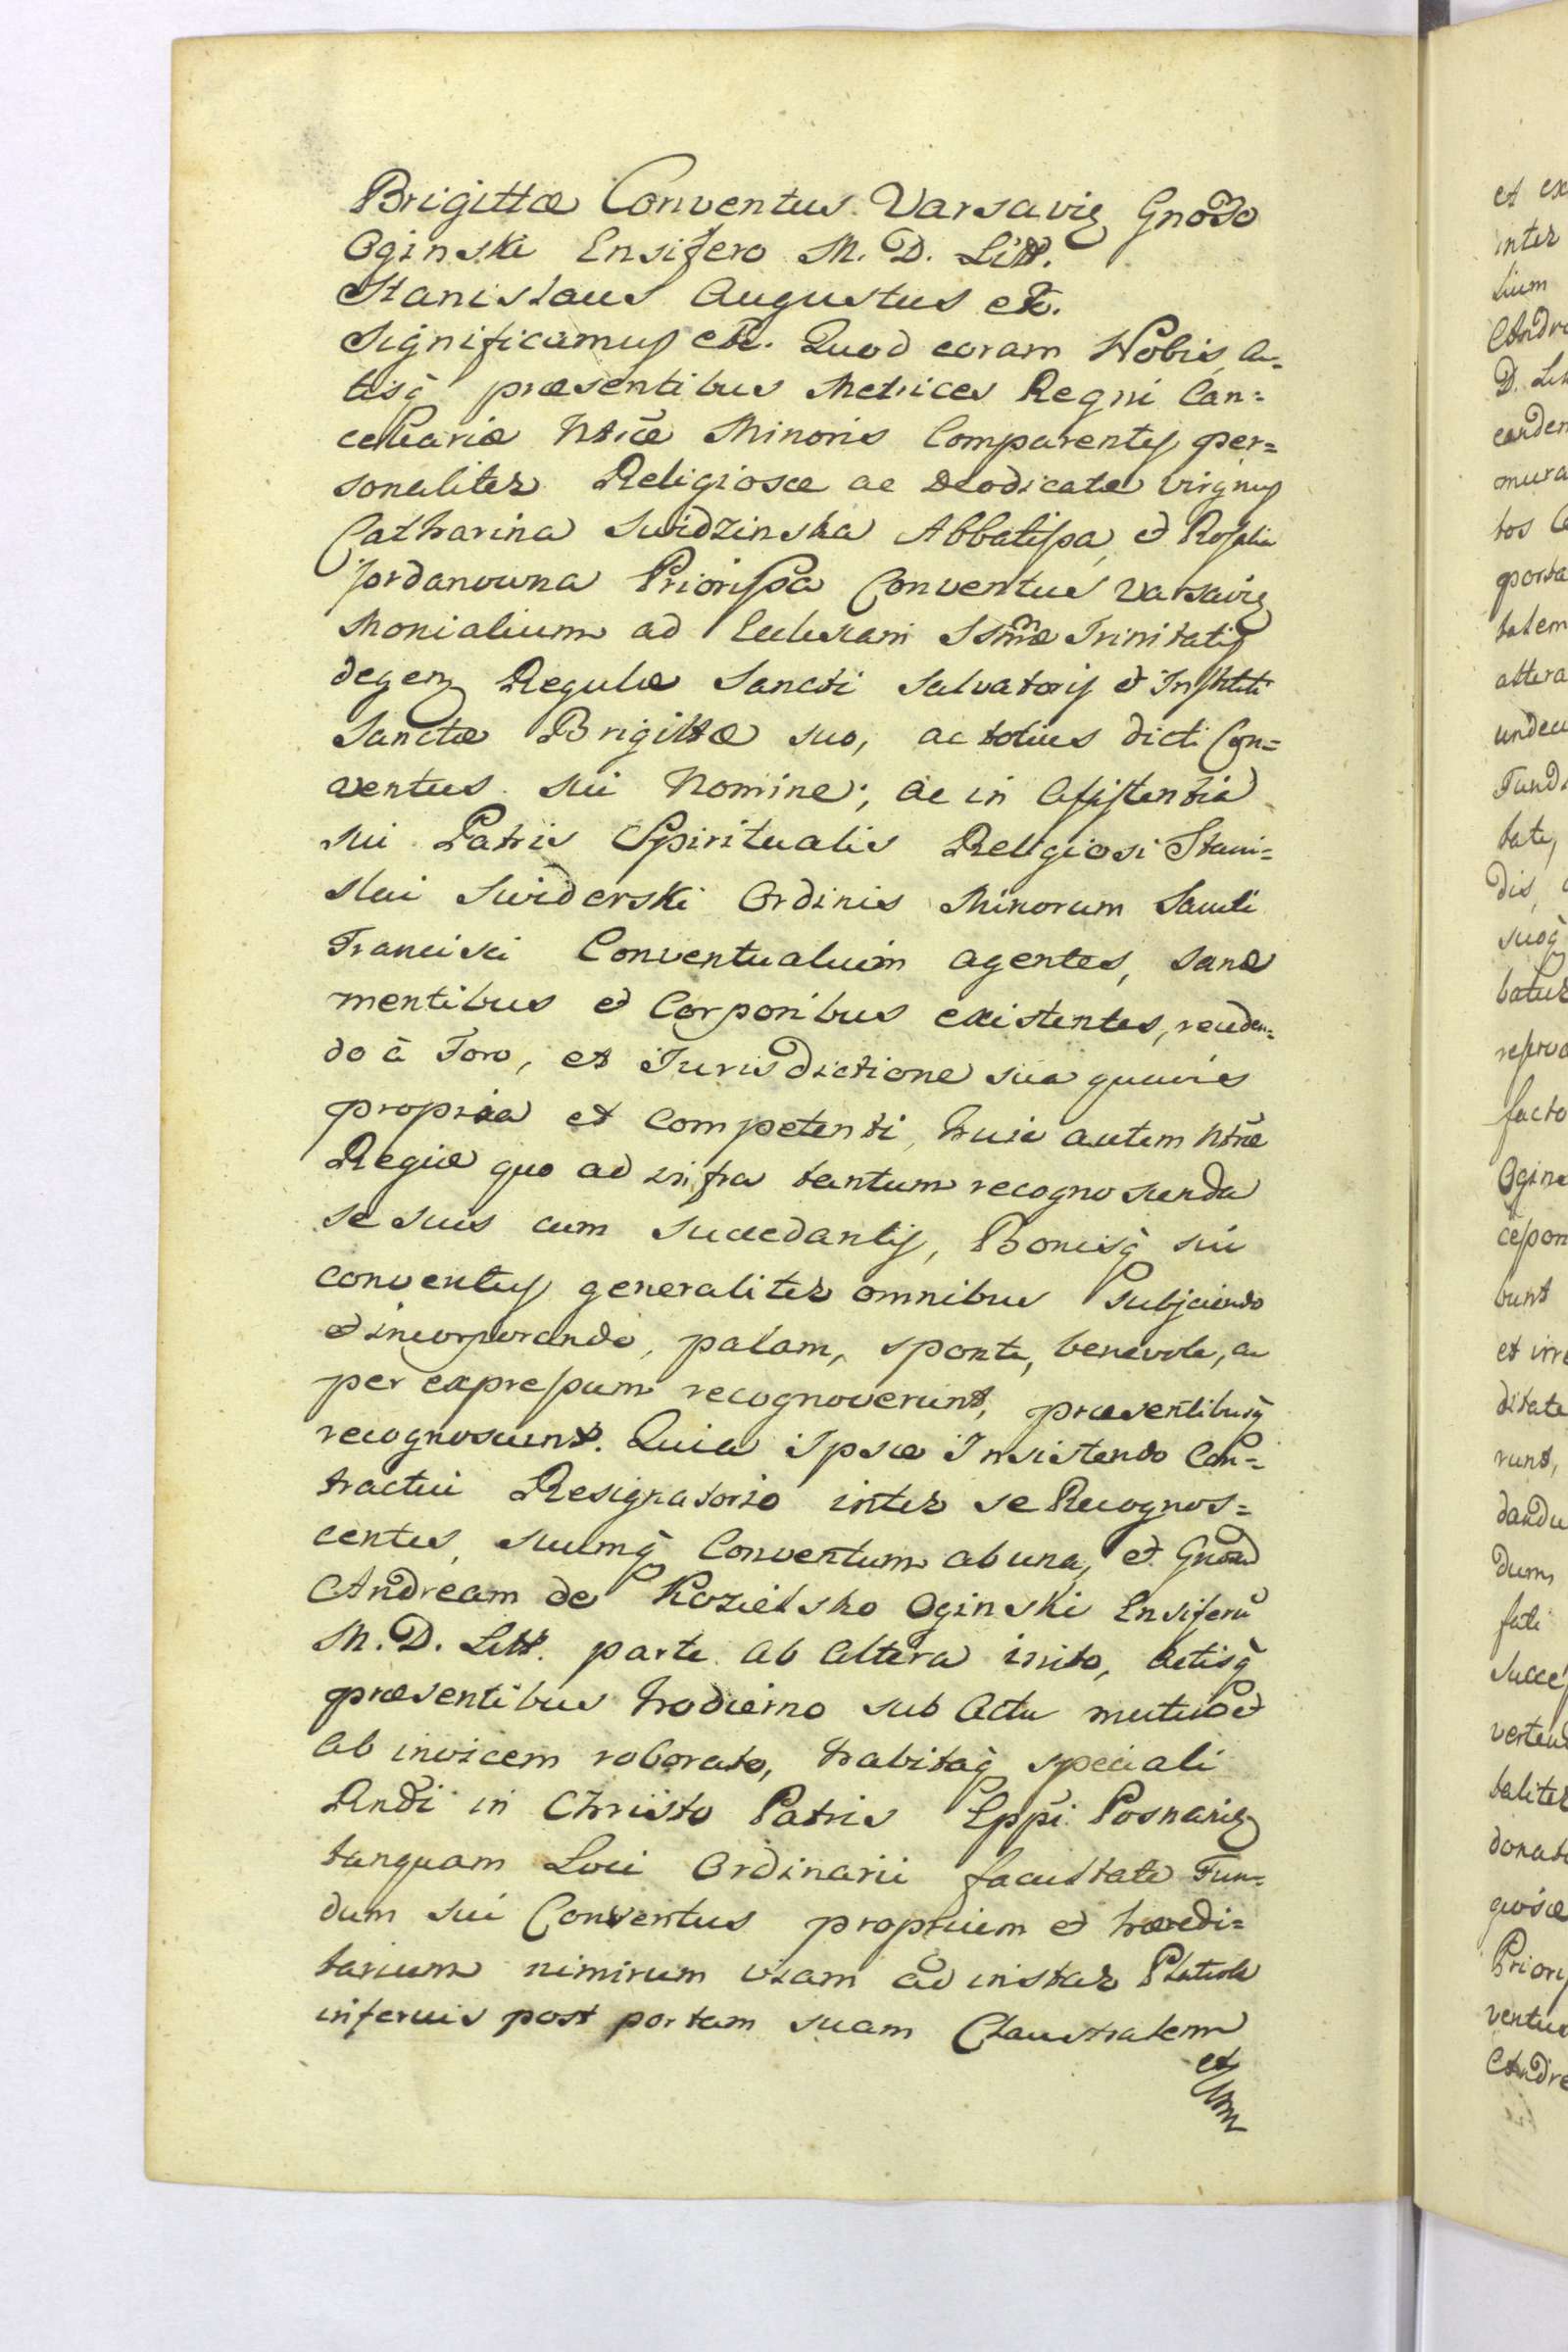 Brigittæ Conventus Varsavię Gnoso
Oginski Ensifero M. D. Litt.
Stanislaus Augustus etc.
Significamus etc. Quod coram Nobis, Ac-
tisq̃ præsentibus Metrices Regni Can=
cellariæ Ntræ Minoris Comparentes per=
sonaliter Religiosæ ac Deodicatæ Virgines
Catharina Swidzinska Abbatissa, et Rosalia
Jordanowna Priorissa Conventus Varsavię
Monialium ad Ecclesiam SSmæ Trinitatis
degen Regulæ Sancti Salvatoris et Instituti
Sanctæ Brigittæ suo, ac totius dicti Con=
ventus sui Nomine; ac in Assistentia
sui Patris Spiritualis Religiosi Stani=
slai Swiderski Ordinis Minorum Sancti
Francisci Conventualium agentes, sanæ
mentibus et Corporibus existentes, receden=
do à Foro, et Jurisdictione sua quavis
propria et competenti, huic autem Ntræ
Regiæ quo ad infra tantum recognoscenda
se suis cum succedantis, Bonisq̃ sui
conventus generaliter omnibus subjiciendo
et incorporando, palam, sponte, benevole, ac
per expressum recognoverunt, præsentibusq̃
recognoscunt. Quia Ipsæ Insistendo Con=
tractui Resignatorio inter se Recognos=
centes, suumq̃ Conventum ab una, et Gnosum
Andream de Kozielsko Oginski Ensiferũ
M. D. Litt. parte ab altera inito, Actisq̃
præsentibus hodierno sub Actu mutuo et
ab invicem roborato, habitaq̃ speciali
Rndi in Christo Patris Eppi Posnanię
tanquam Loci Ordinarii facultate Fun=
dum sui Conventus proprium et hæredi=
tarium nimirum viam ad instar Plateolæ
inservis post portam suam Claustralem
et

et ex
inter
lium
Andre
D. Lit
eandem
mura
tos
porta
tatem
altera
undecu
Fund
tate,
dis,
suoq̃
batur
reserva
facto
Ogins
cessor
bunt
et irre
ditate
runt,
dandu
dum
fati
succes
vertend
taliter
donat
giosæ
Prioris
ventus
Andre